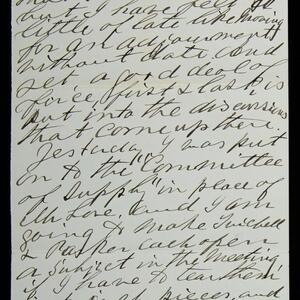 but I have felt
little of late like moving
for an adjournment
without date. And
yet, a good deal of
fire, first & last is
put into the discussions
that come up there.
Yesterday I was put
on to the "Committee
of Supply" in place of
Mr Love. And I am
going to make Twichell
& Parker each open
a subject in the meeting
if I have to tear them
pieces and